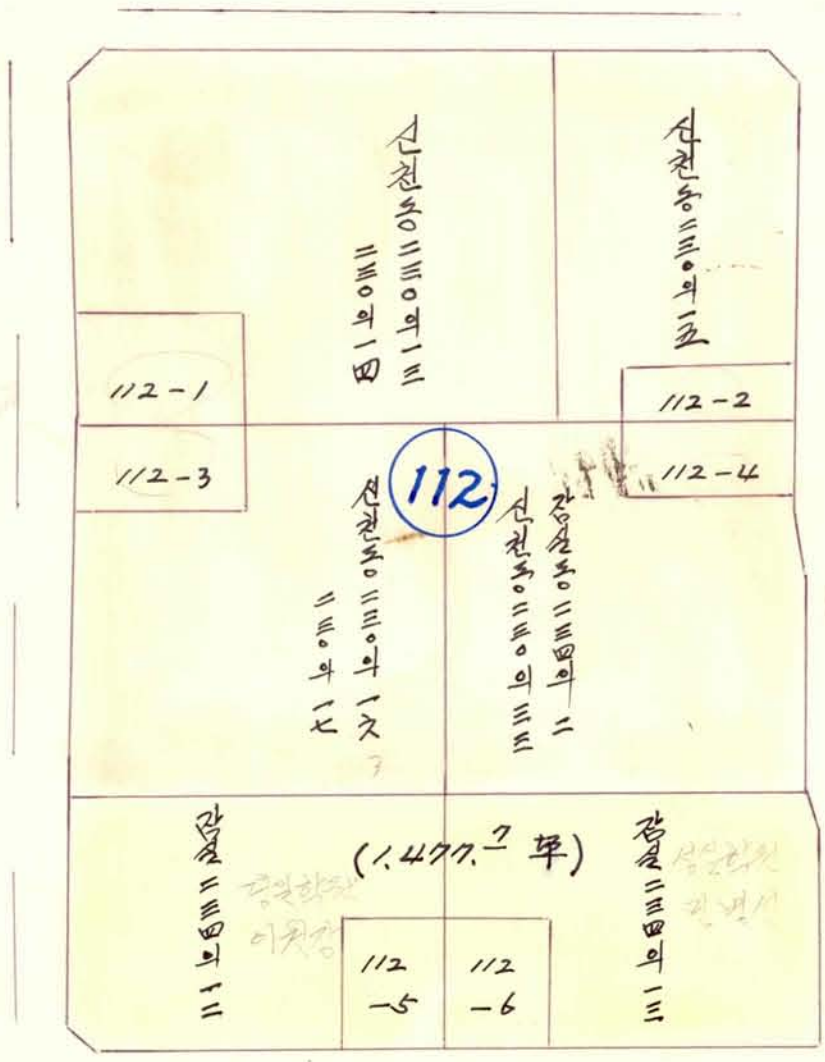 신천동二三〇의一三
二三〇의一四
신천동二三〇의一五
112-1
112-2
112-3
112-4
112
신천동二三〇의一六
二三〇의一七
잠실동二三四의二
신천동二三〇의三三
잠실二三四의一二
(1.477.7 坪)
잠실二三四의一三
112
-5
112
-6